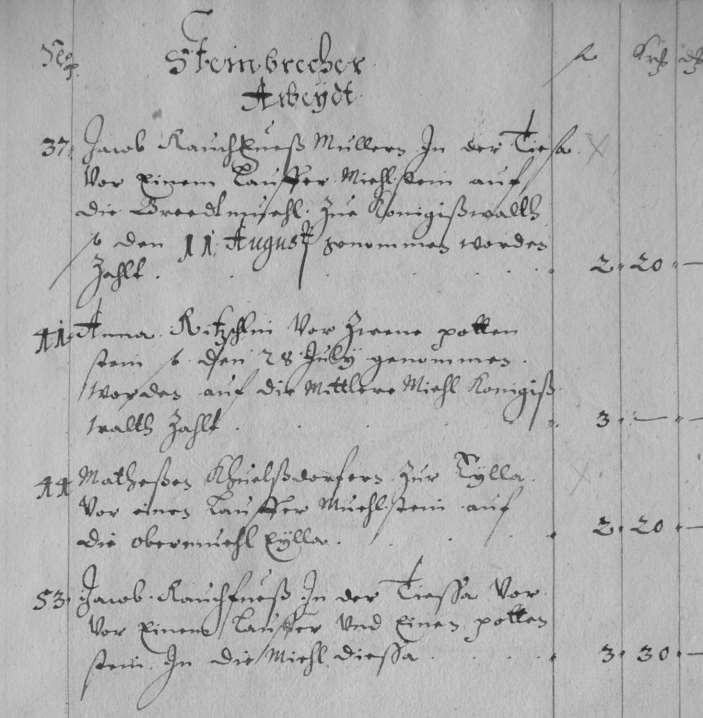 Steinbrecher
Arbeydt
37. Jacob Rauchfueß Mullern In der Tiesa
Vor Einem Lauffer Miehlstein auf
die Breedtmuehl Zue Konigißwalth
den 11 August genommen worden
Zahlt . . . . 2 . 20 . —
41. Anna Kitzschin Vor Zweene potten
stein den 28 July genommen
worden auf die Mittlere Miehl Konigiß
walth Zahlt . . . . 3 . — . —
44 Matheßen Khuelßdorfern Zur Eylla
Vor einen Lauffer Muehlstein auf
die obermuehl Eylla . . . . 2 . 20 . —
53. Jacob Rauchfueß In der Tiessa Vor
Vor Einem Lauffer Vnd Einen potten
stein In die Miehl diessa . . . . 3 . 30 . —